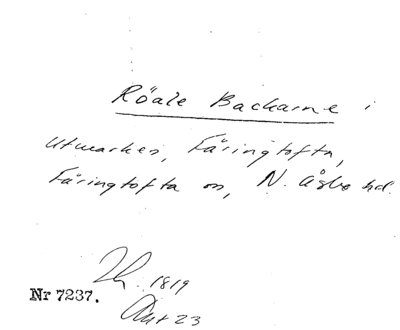 Röale Backarne i
Utmarken, Färingtofta,
Färingtofta sn, N. Åsbo hd.
1819
Nr 7237.
Akt 23